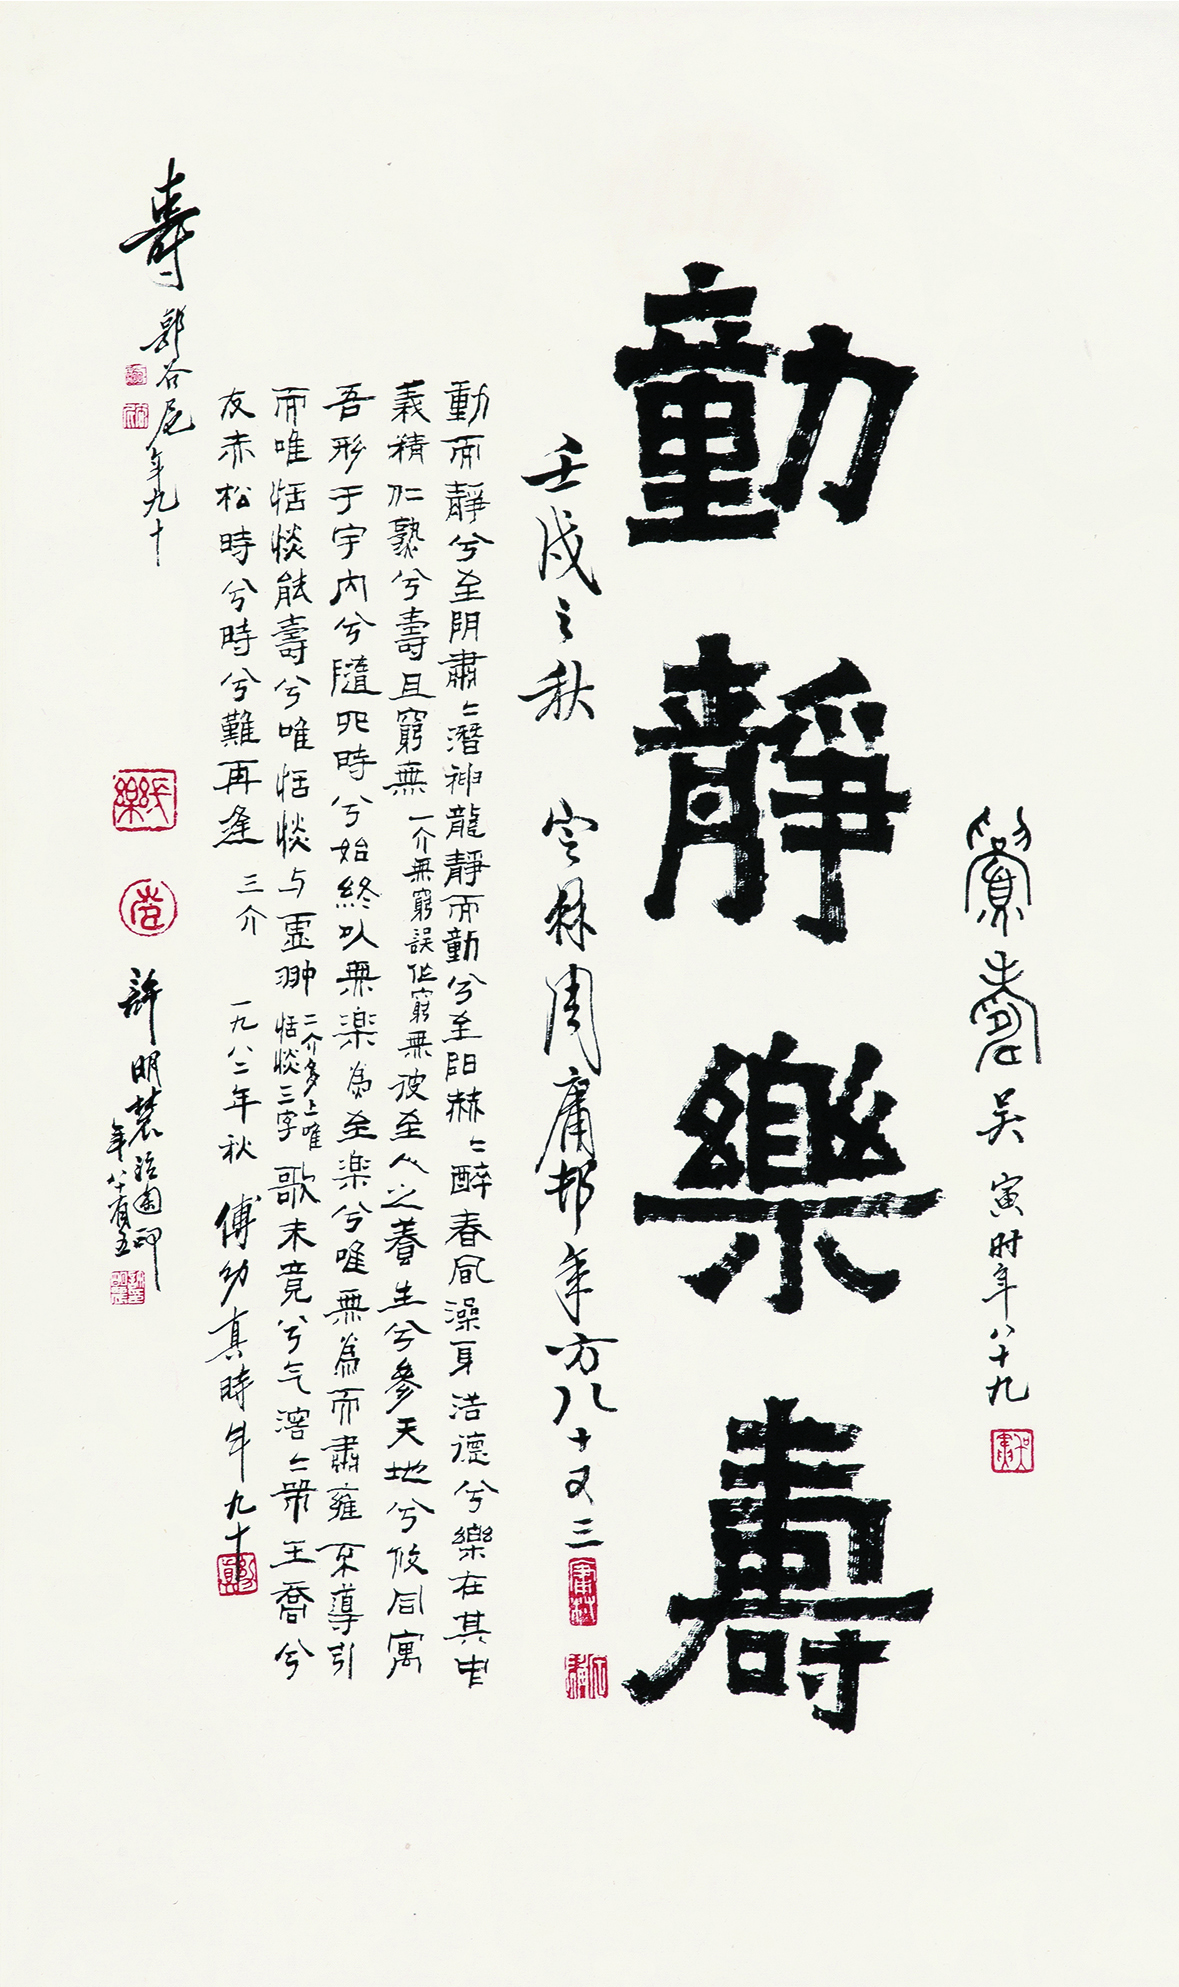 寮壽 吴寅时年八十九
動靜樂壽
壬戌之秋 空林周庸邨年方八十又三
動而靜兮至阴肅〻潛神龍靜而動兮至阳赫〻醉春風澡身浩德兮樂在其中
義精仁熟兮壽且窮無一介無窮誤作窮無彼至人之養生兮參天地兮攸同寓
吾形于宇内兮隨四時兮始終以無楽為至楽兮唯無為而肅雍不導引
而唯恬惔能壽兮唯恬惔与靈翀二介多上唯恬惔三字歌未竟兮气滃〻来王喬兮
友赤松時兮時兮難再逢 三介 一九八二年秋 傅幼真時年九十
壽 郭谷尼年九十
許明農治圖印年八十有五